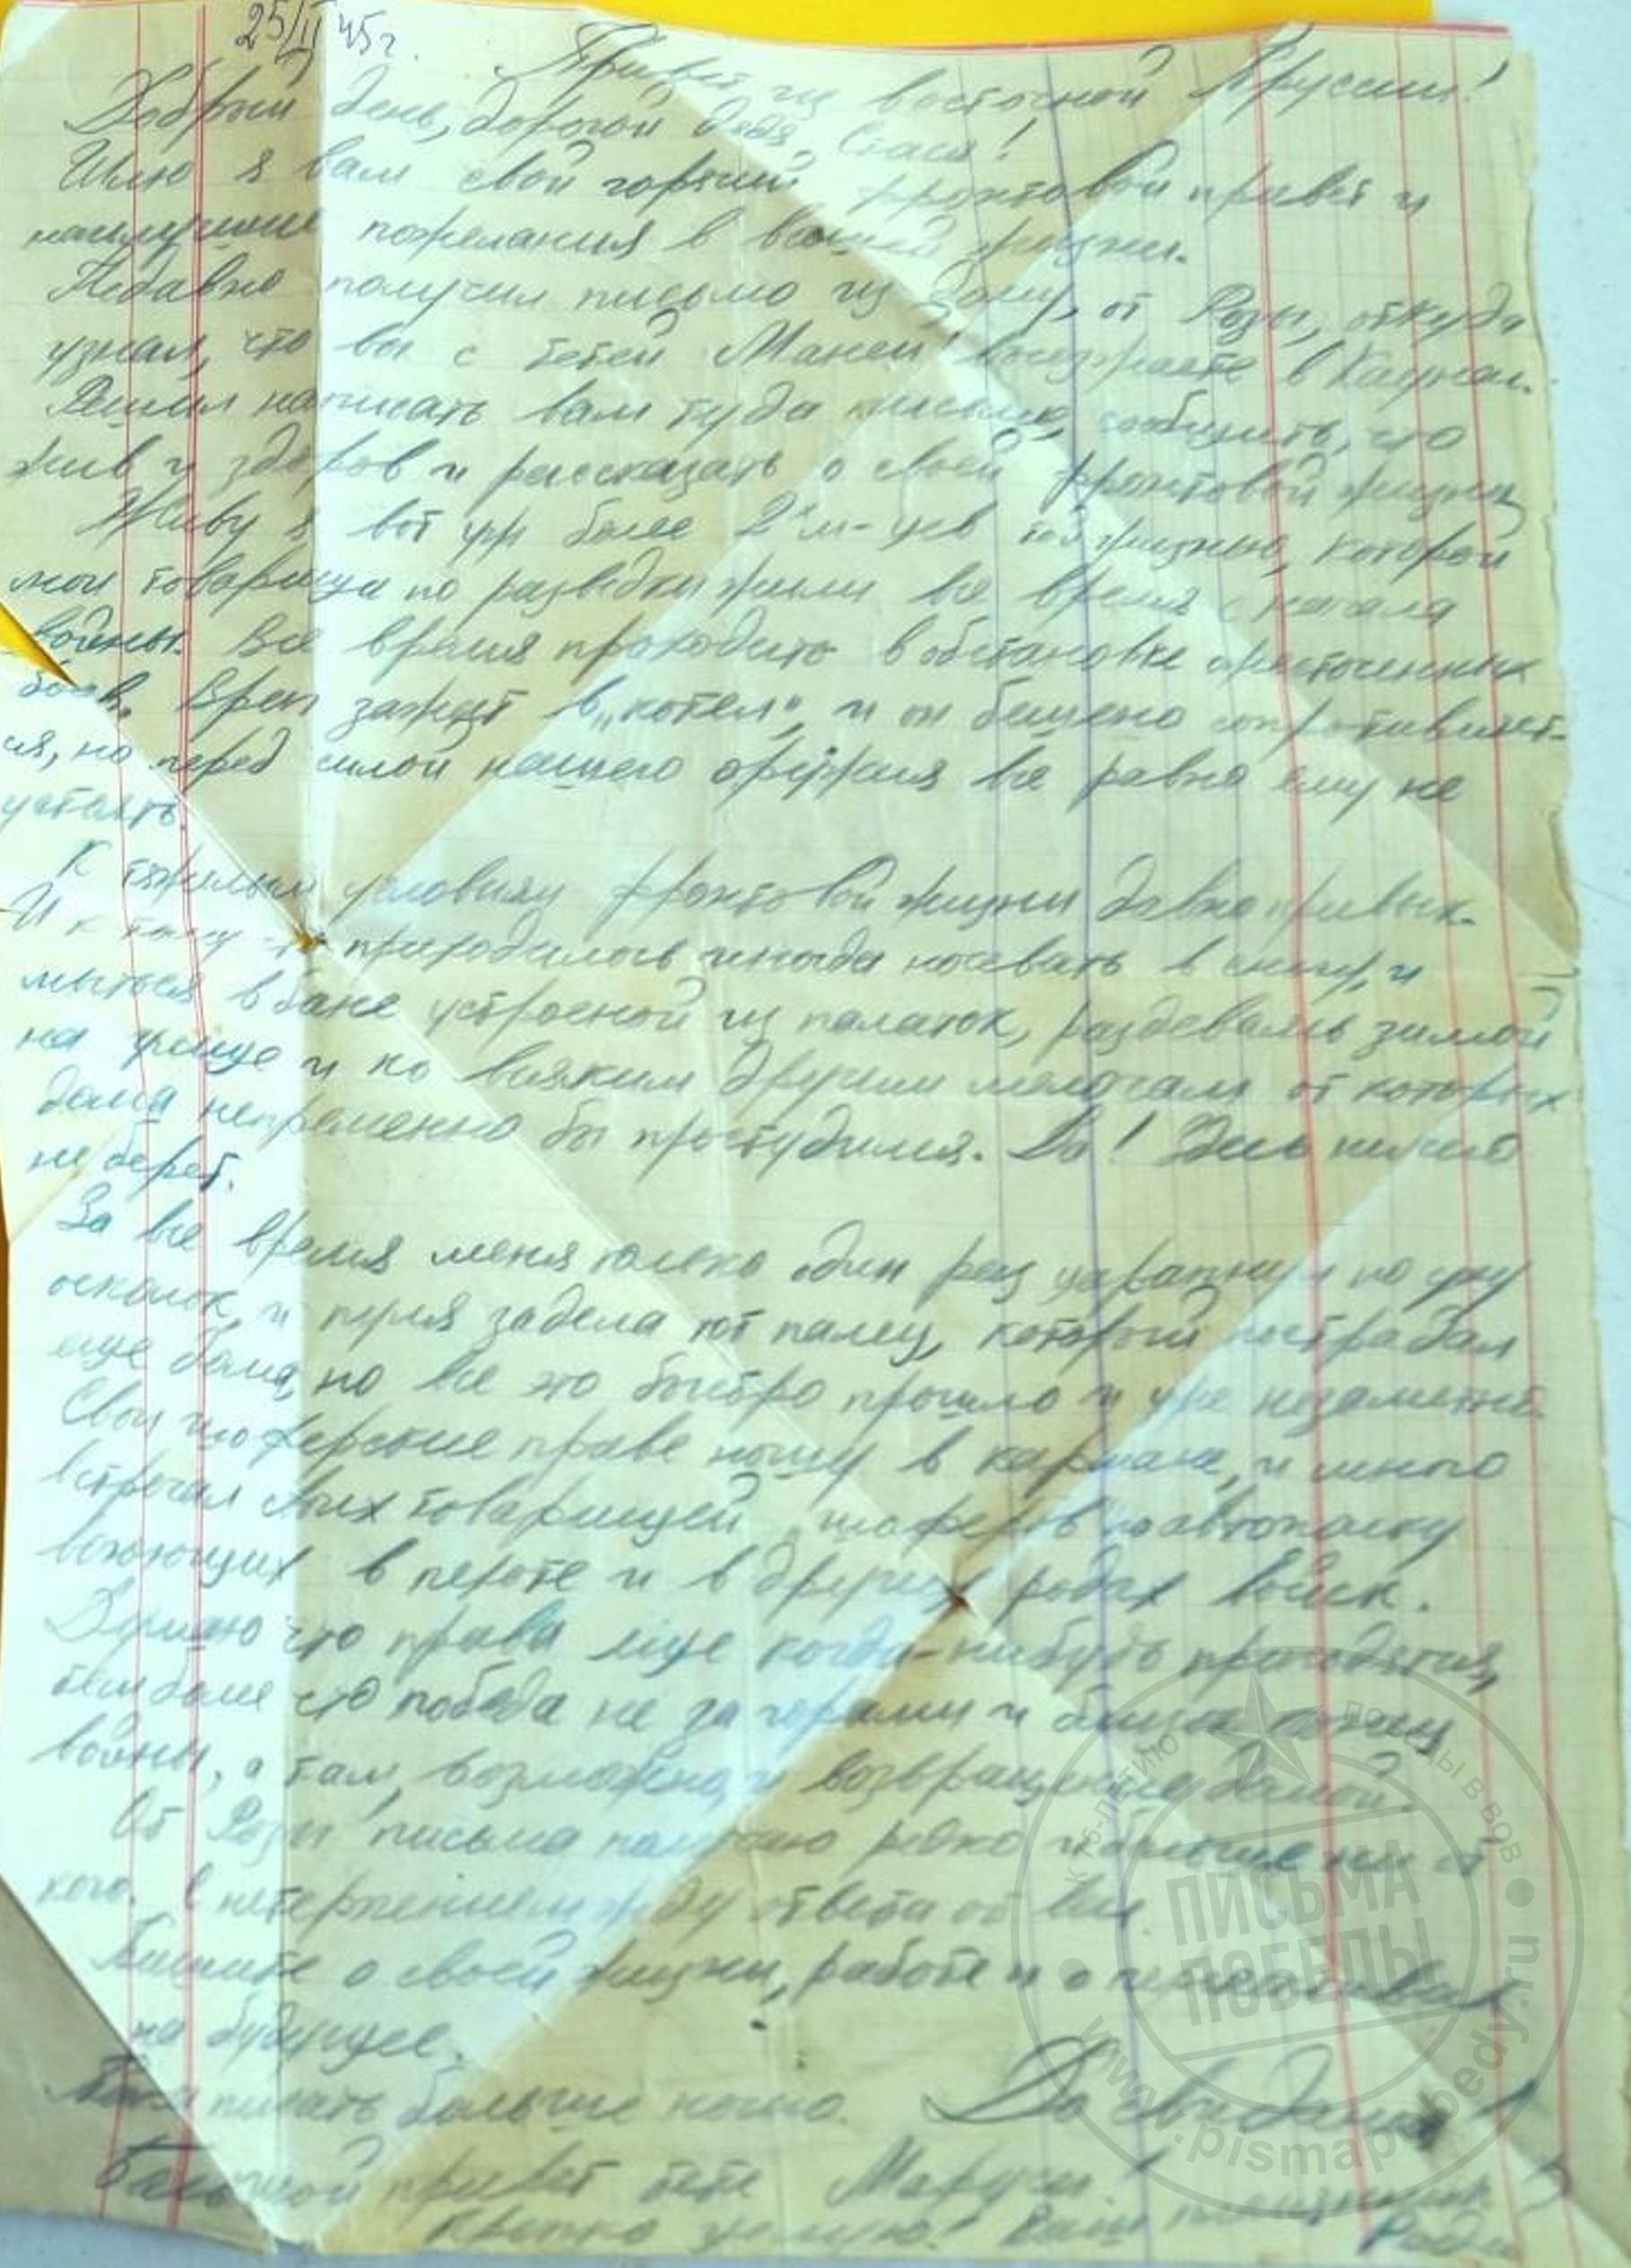 25/II 45г.
Привет из восточной Пруссии!
Добрый день, дорогой дядя Стася!
Шлю я вам свой горячий фронтовой привет и
наилучшие пожелания в вашей жизни.
Недавно получил письмо из дому, от Розы, откуда
узнал, что вы с тетей Маней выезжаете в Каунас.
Решил написать вам туда письмо, сообщить, что
жив и здоров и рассказать о своей фронтовой жизни
Живу я вот уже более 2х м-цев той жизнью, которой
мои товарища по разведки жили все время с начала
войны. Все время проходить в обстановке ожесточенных
боев. Враг зажат в „котел", и он бешено сопротивляет-
ся, но перед силой нашего оружия все равно ему не
устоять.
К тяжелым условиям фронтовой жизни давно привык.
И к тому приходилось иногда ночевать в снегу, и
мыться в бане устроеной из палаток, раздеваясь зимой
на улице и ко всяким другим мелочам от которых
дома непременно бы простудился. Да! Здесь ничего
не берет.
За все время меня только один раз царапнул по уху
осколок, и пуля задела тот палец, который пострадал
еще дома, но все это быстро прошло и уже незаметно.
Свои шоферские права ношу в кармане, и много
встречал своих товарищей шоферов по автополку
воюющих в пехоте и в других родах войск.
Думаю что права еще когда-нибудь пригодятся,
тем боле что победа не за горами и близок конец
войны, а там, возможно, и возвращение домой.
От Розы письма получаю редко и больше ни от
кого. С нетерпением жду ответа от вас.
Пишите о своей жизни, работе и о перспективах
на будущее.
Пока писать больше нечего. До свидания!
Большой привет тете Марусе!
Крепко целую! Ваш племянник
К 75-ЛЕТИЮ ПОБЕДЫ В ВОВ
ПИСЬМА
ПОБЕДЫ
www.pismapobedy.ru